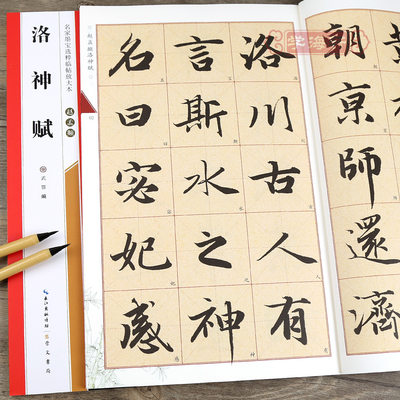 黄
朝亰師還濟
洛川古人有
言斯水之神
名曰宓妃感
赵孟頫洛神赋
名家墨宝选粹临帖放大本
赵孟頫
洛神赋
编
长江出版传媒
崇文书局
学海